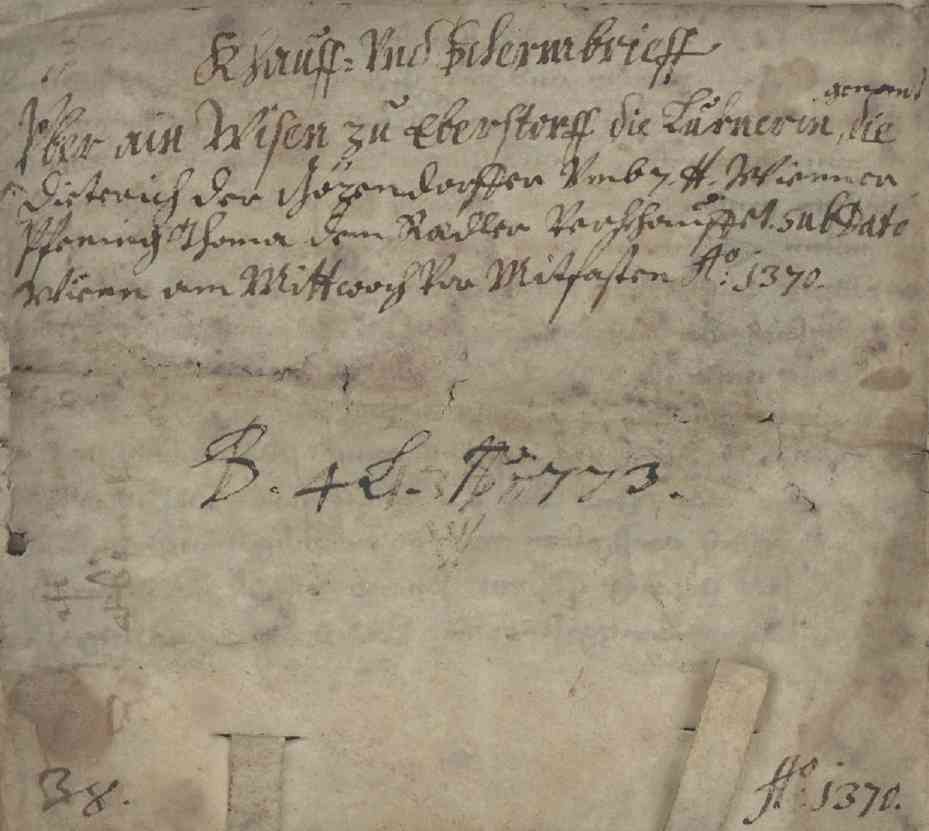 Khauff- Und Schermbrieff
Uber ain Wisen zu Eberstorff die Turnerin genant, die
Dieterich der Gözendorffer Umb 7. ℔. Wienner
Pfening Thoma dem Radler Verkhauffet. sub Dato
Wienn am Mittwoch Vor Mitfasten Aõ: 1370.
B. 4 L. No 773.
38.
Aõ: 1370.